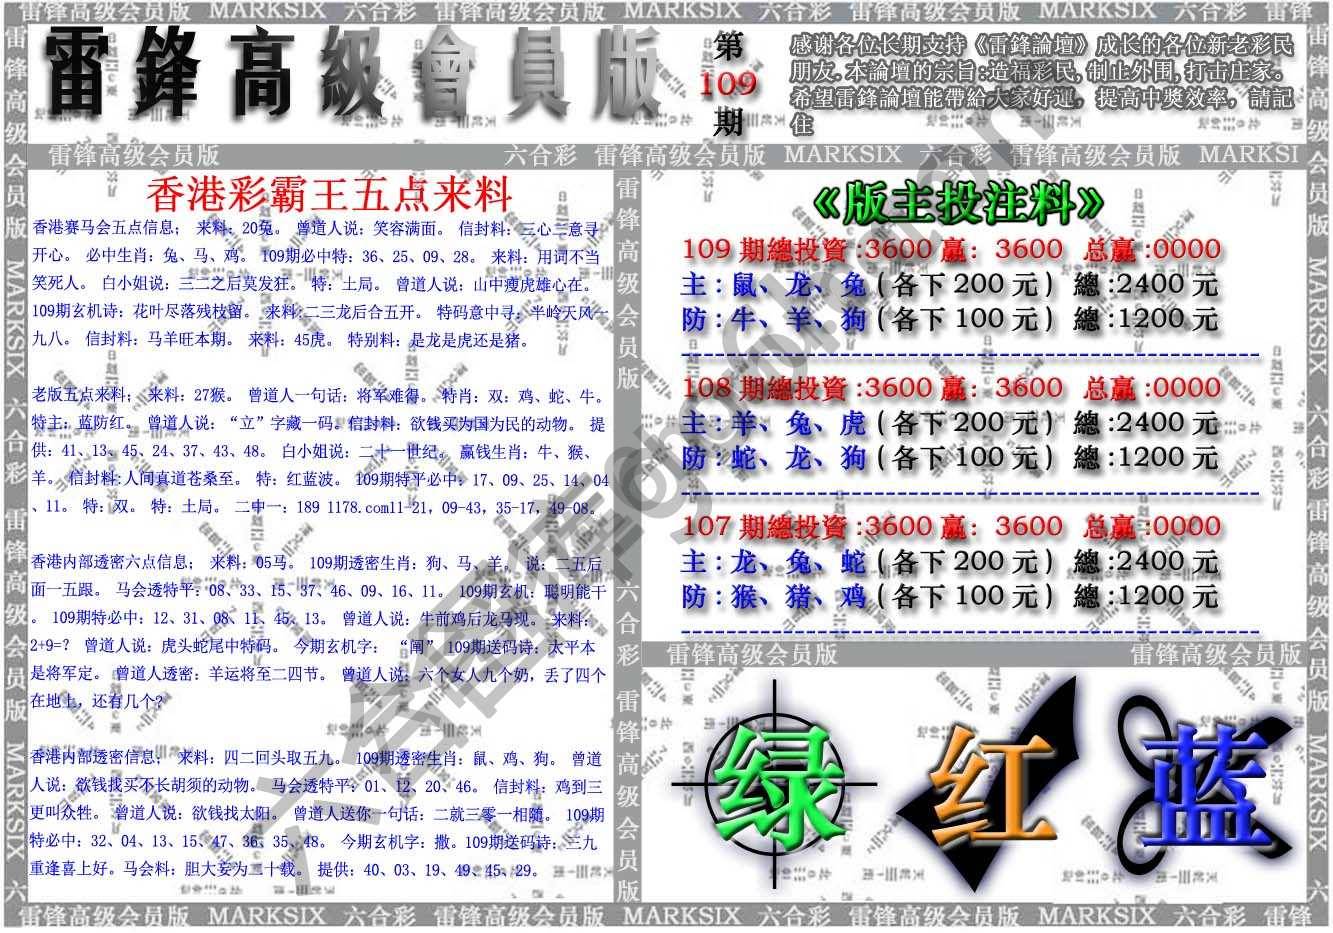 雷锋高级会员版 MARKSIX 六合彩 雷锋高级会员版 MARKSIX 六合彩 雷锋高级会员版 MARKSIX 六合彩 雷锋
雷鋒高級會員版
第
109
期
感谢各位长期支持《雷鋒論壇》成长的各位新老彩民
朋友.本論壇的宗旨:造福彩民,制止外围,打击庄家。
希望雷鋒論壇能帶給大家好運，提高中獎效率，請記
住
雷锋高级会员版 六合彩 雷锋高级会员版 MARKSIX 六合彩 雷锋高级会员版 MARKSI
香港彩霸王五点来料
香港赛马会五点信息； 来料：20兔。 曾道人说：笑容满面。 信封料：三心二意寻
开心。 必中生肖：兔、马、鸡。 109期必中特：36、25、09、28。 来料：用词不当
笑死人。 白小姐说：三二之后莫发狂。 特：土局。 曾道人说：山中瘦虎雄心在。
109期玄机诗：花叶尽落残枝留。 来料:二三龙后合五开。 特码意中寻：半岭天风一
九八。 信封料：马羊旺本期。 来料：45虎。 特别料：是龙是虎还是猪。
老版五点来料； 来料：27猴。 曾道人一句话：将军难得。 特肖：双：鸡、蛇、牛。
特主：蓝防红。 曾道人说：“立”字藏一码。信封料：欲钱买为国为民的动物。 提
供：41、13、45、24、37、43、48。 白小姐说：二十一世纪。 赢钱生肖：牛、猴、
羊。 信封料:人间真道苍桑至。 特：红蓝波。 109期特平必中：17、09、25、14、04
、11。 特：双。 特：土局。 二中一：189 1178.com11-21，09-43，35-17，49-08。
香港内部透密六点信息； 来料：05马。 109期透密生肖：狗、马、羊。 说：二五后
面一五跟。 马会透特平：08、33、15、37、46、09、16、11。 109期玄机：聪明能干
。 109期特必中：12、31、08、11、45、13。 曾道人说：牛前鸡后龙马现。 来料：
2+9=？ 曾道人说：虎头蛇尾中特码。 今期玄机字： “阐” 109期送码诗：太平本
是将军定。 曾道人透密：羊运将至二四节。 曾道人说：六个女人九个奶，丢了四个
在地上，还有几个?
香港内部透密信息； 来料：四二回头取五九。 109期透密生肖：鼠、鸡、狗。 曾道
人说：欲钱找买不长胡须的动物。 马会透特平：01、12、20、46。 信封料：鸡到三
更叫众牲。 曾道人说：欲钱找太阳。 曾道人送你一句话：二就三零一相随。 109期
特必中：32、04、13、15、47、36、35、48。 今期玄机字：撒。109期送码诗：三九
重逢喜上好。马会料：胆大妄为二十载。 提供：40、03、19、49、45、29。
《版主投注料》
109 期總投資 :3600 赢：3600 总赢 :0000
主：鼠、龙、兔 ( 各下 200 元 ) 總 :2400 元
防：牛、羊、狗 ( 各下 100 元 ) 總 :1200 元
108 期總投資 :3600 赢：3600 总赢 :0000
主：羊、兔、虎 ( 各下 200 元 ) 總 :2400 元
防：蛇、龙、狗 ( 各下 100 元 ) 總 :1200 元
107 期總投資 :3600 赢：3600 总赢 :0000
主：龙、兔、蛇 ( 各下 200 元 ) 總 :2400 元
防：猴、猪、鸡 ( 各下 100 元 ) 總 :1200 元
雷锋高级会员版 雷锋高级会员版
绿 红 蓝
雷锋高级会员版 MARKSIX 六合彩 雷锋高级会员版 MARKSIX 六合彩 雷锋高级会员版 MARKSIX 六合彩 雷锋